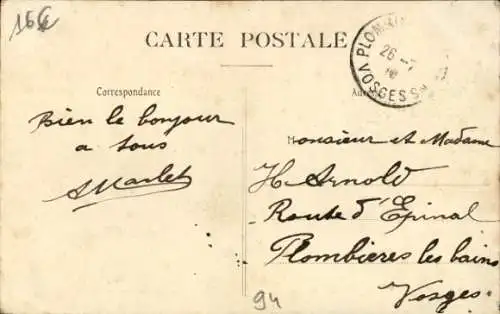 16€
CARTE POSTALE
PLOMB
26
VOSGES
Correspondance
Bien le bonjour
a tous
Monsieur et Madame
H. Arnold
Route d'Epinal
Plombières les bains
Vosges
94